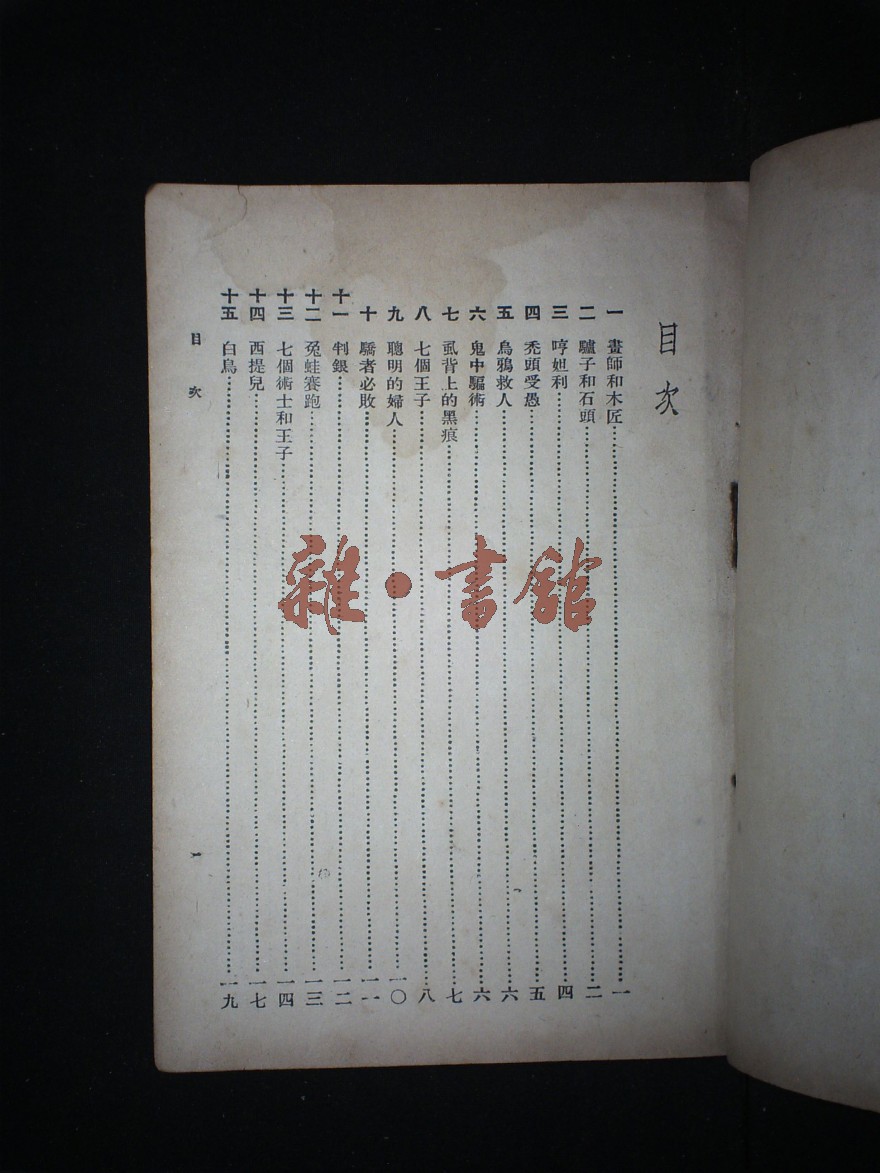 目次
一 畫師和木匠 一
二 驢子和石頭 二
三 哼妲利 四
四 禿頭受愚 五
五 烏鴉救人 六
六 鬼中騙術 六
七 虱背上的黑痕 七
八 七個王子 八
九 聰明的婦人 一〇
十 驕者必敗 一一
十一 判銀 一二
十二 兔蛙賽跑 一三
十三 七個術士和王子 一四
十四 西提兒 一七
十五 白鳥 一九
目次 一
雜·書館